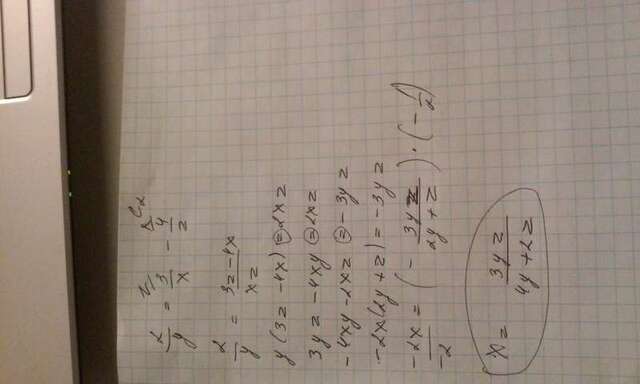 2/y = 3/x - 4/z
2/y = (3z - 4x)/(xz)
y(3z - 4x) = 2xz
3yz - 4xy = 2xz
-4xy - 2xz = -3yz
-2x(2y + z) = -3yz
-2x/-2 = (-3yz/(2y + z)) · (-1/2)
x = 3yz/(4y + 2z)